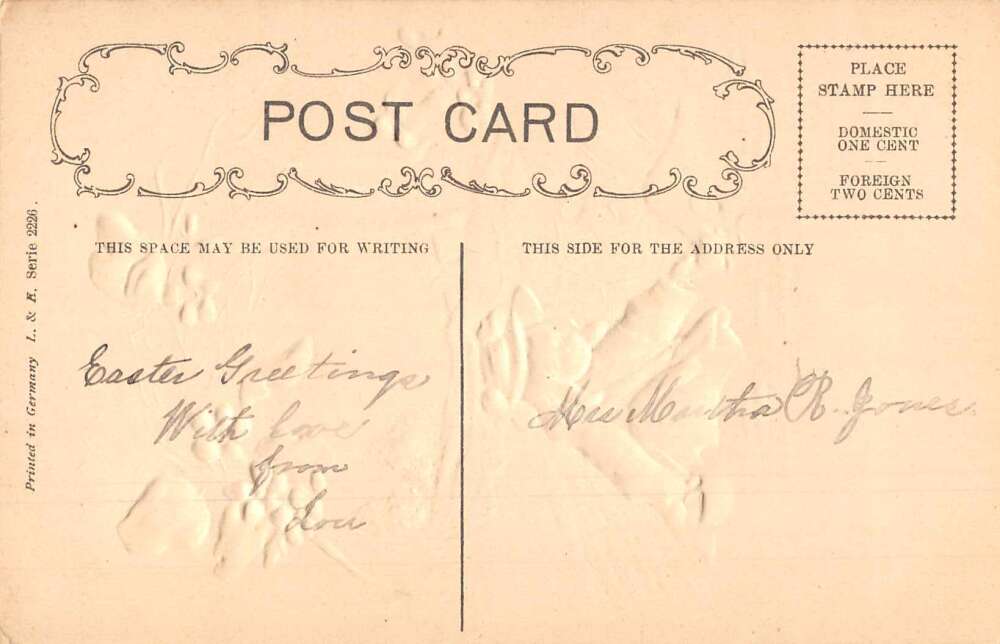 POST CARD
PLACE
STAMP HERE
DOMESTIC
ONE CENT
FOREIGN
TWO CENTS
THIS SPACE MAY BE USED FOR WRITING
THIS SIDE FOR THE ADDRESS ONLY
Printed in Germany L. & E. Serie 2226.
Easter Greetings
With love
from
Lou
Mrs Martha R. Jones